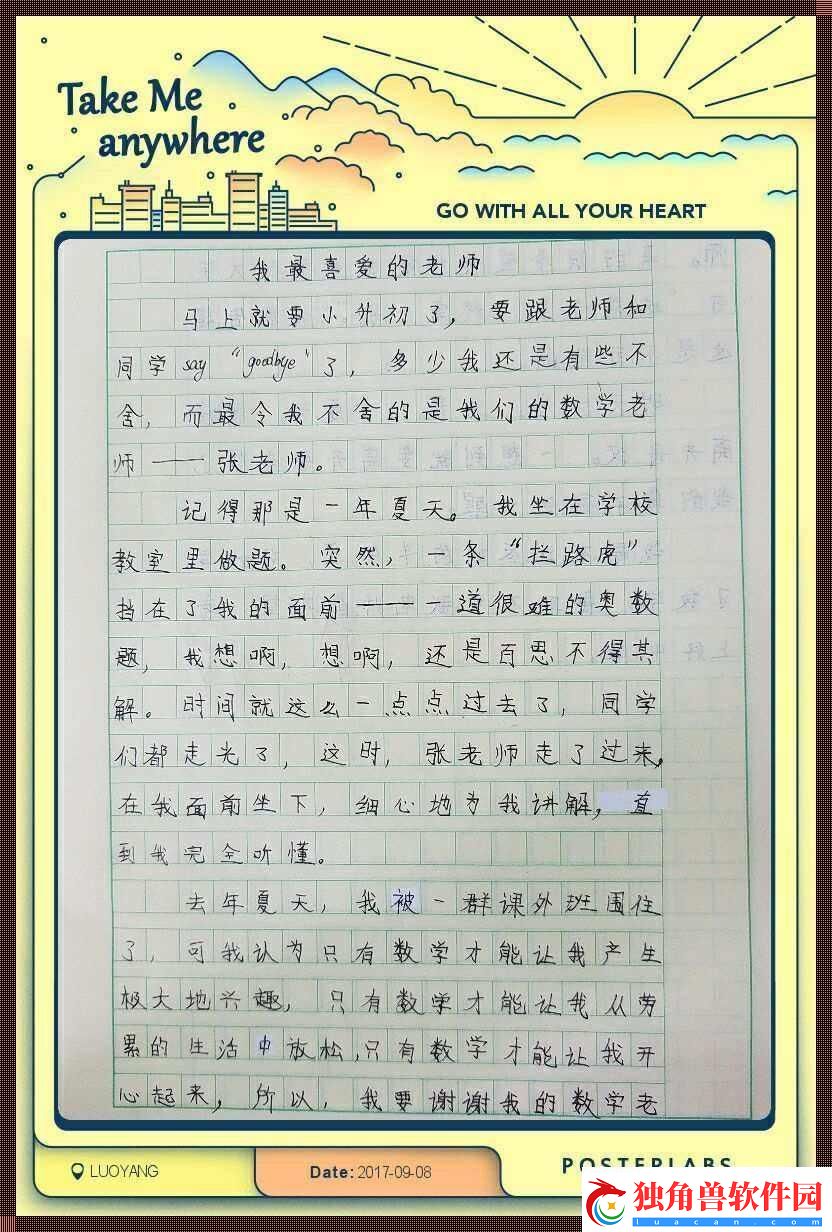 Take Me
anywhere
GO WITH ALL YOUR HEART
我最喜爱的老师
马上就要小升初了，要跟老师和
同学say“goodbye”了，多少我还是有些不
舍，而最令我不舍的是我们的数学老
师——张老师。
记得那是一年夏天。我坐在学校
教室里做题。突然，一条“拦路虎”
挡在了我的面前——一道很难的奥数
题，我想啊，想啊，还是百思不得其
解。时间就这么一点点过去了，同学
们都走光了，这时，张老师走了过来，
在我面前坐下，细心地为我讲解，直
到我完全听懂。
去年夏天，我被一群课外班围住
了，可我认为只有数学才能让我产生
极大地兴趣，只有数学才能让我从劳
累的生活中放松，只有数学才能让我开
心起来，所以，我要谢谢我的数学老
LUOYANG
Date: 2017-09-08
POSTERLABS
独角兽软件园
luacan.com